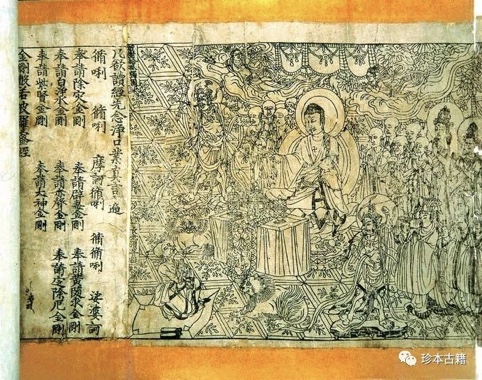 凡欲讀經先念淨口業真言遍
脩唎 脩唎 摩訶脩唎 脩脩唎 娑婆訶
奉請除灾金剛 奉請辟毒金剛 奉請黃隨求金剛
奉請白淨水金剛 奉請赤聲金剛 奉請定除厄金剛
奉請紫賢金剛 奉請大神金剛
金剛般若波羅蜜經
珍本古籍